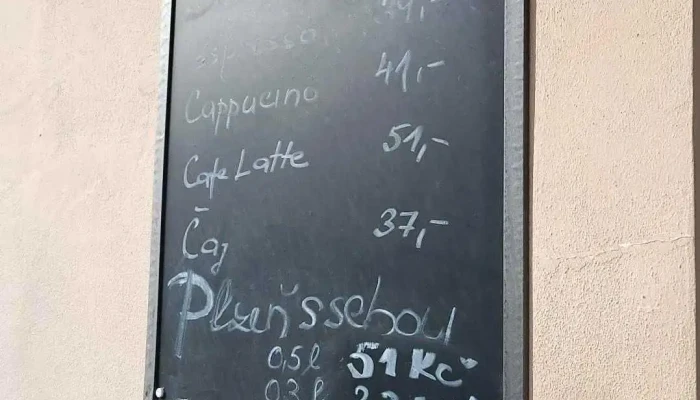 espresso 39,-
Cappucino 41,-
Cafe Latte 51,-
Čaj 37,-
Plzeň ssebou
0,5 l 51 Kč
0,3 l